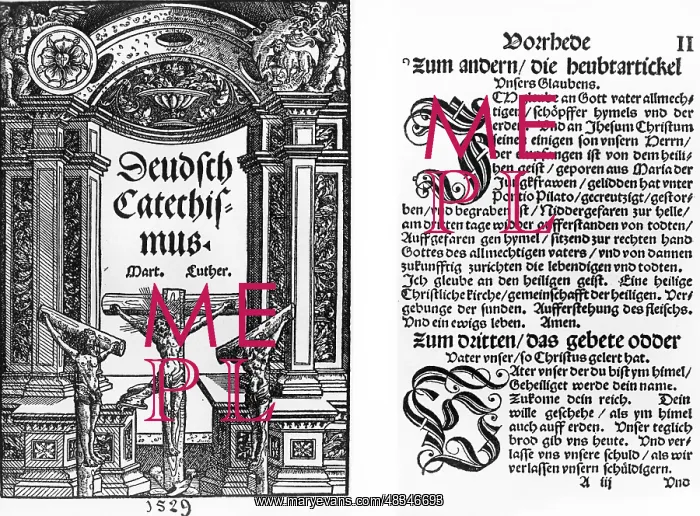 Deudsch
Catechis-
mus.
Mart. Luther.
1529
Vorrhede II
Zum andern/ die heubtartickel
Vnsers Glaubens.
glaube an Gott vater allmech-
tigen/ schöpffer hymels vnd der
erden. Vnd an Jhesum Christum
seinen einigen son vnsern Herrn/
der empfangen ist von dem heili-
gen geist/ geporen aus Maria der
Jungkfrawen/ gelidden hat vnter
Pontio Pilato/ gecreutzigt/ gestor-
ben/ vnd begraben ist/ Niddergefaren zur helle/
am dritten tage widder aufferstanden von todten/
Auffgefaren gen hymel/ sitzend zur rechten hand
Gottes des allmechtigen vaters/ vnd von dannen
zukunfftig zurichten die lebendigen vnd todten.
Ich gleube an den heiligen geist. Eine heilige
Christliche kirche/ gemeinschafft der heiligen. Ver-
gebunge der sunden. Aufferstehung des fleischs.
Vnd ein ewigs leben. Amen.
Zum dritten/ das gebete odder
Vater vnser/ so Christus gelert hat.
VAter vnser der du bist ym himel/
Geheiliget werde dein name.
Zukome dein reich. Dein
wille geschehe/ als ym himel
auch auff erden. Vnser teglich
brod gib vns heute. Vnd ver-
lasse vns vnsere schuld/ als wir
verlassen vnsern schüldigern.
A iij Vnd
ME
PL
ME
PL
www.maryevans.com/48946693